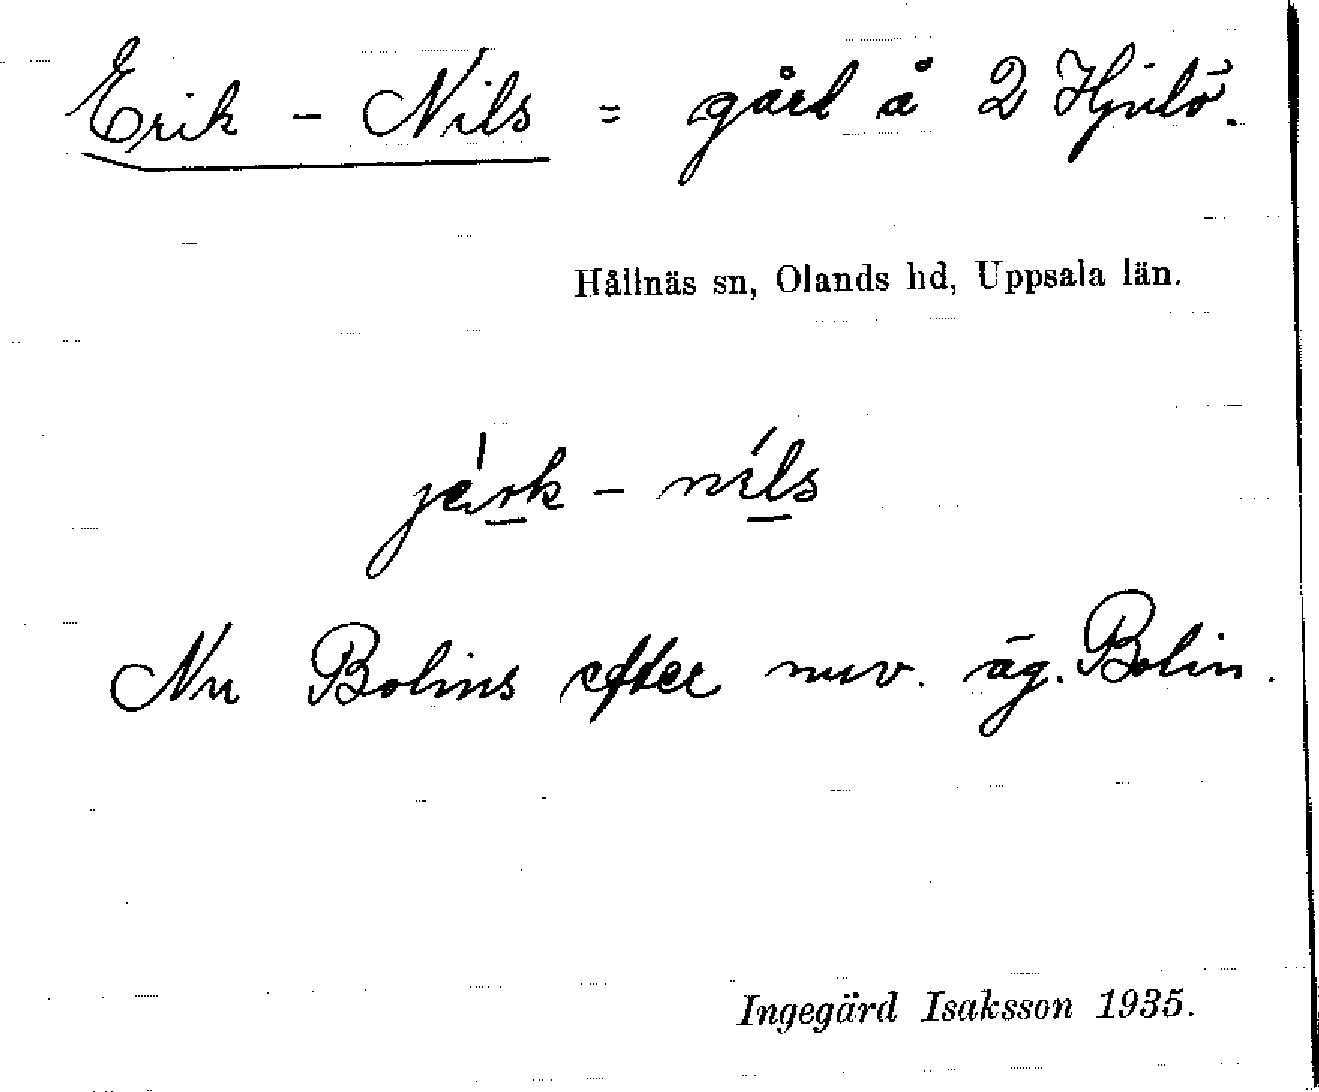 Erik - Nils = gård å 2 Hjälö.
Hållnäs sn, Olands hd, Uppsala län.
jè̱rk - níls
Nu Bolins efter nuv. äg. Bolin.
Ingegärd Isaksson 1935.